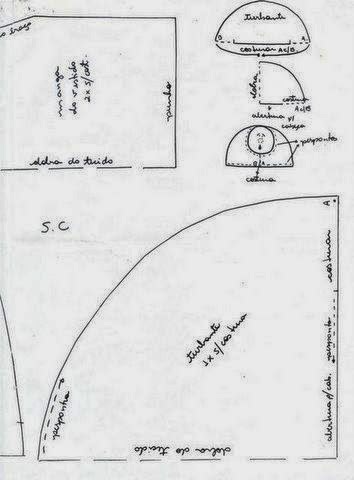 turbante
B
A
costurar A c/B
dobra
costura
A c/B
abertura p/
cabeça
pesponto
B
A
costura
manga
do vestido
2x s/cost.
punho
dobra do tecido
S.C
A
costurar
turbante
1x s/costura
pesponto
pesponto
abertura p/cab.
dobra do tecido